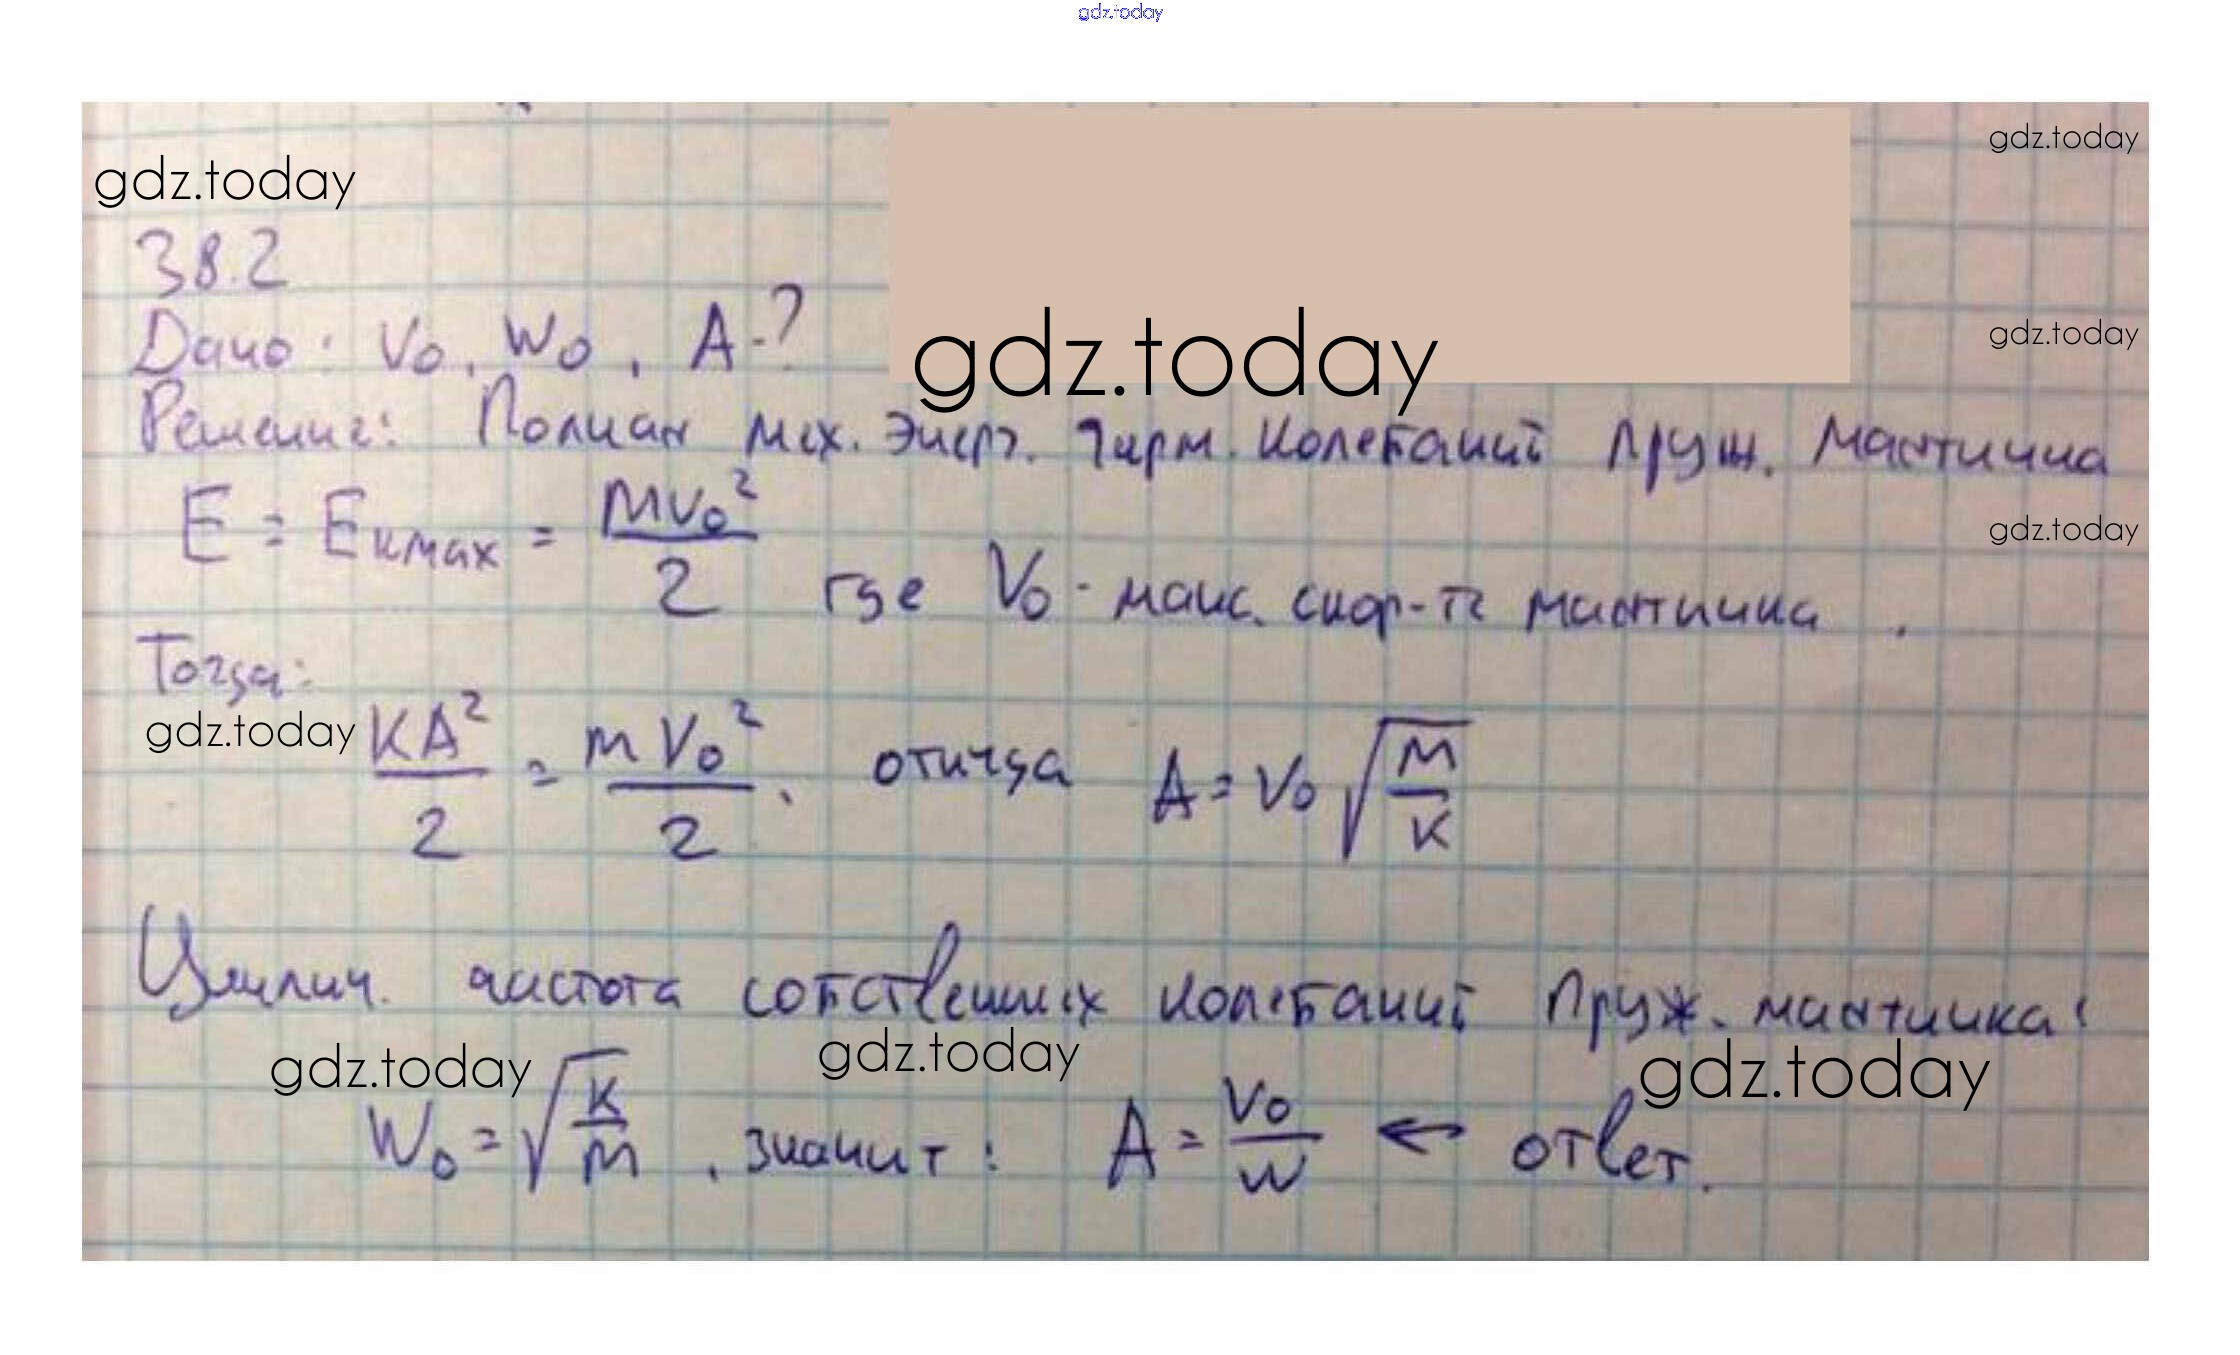 gdz.today
gdz.today
gdz.today
38.2
Дано: V₀, W₀, A-?
gdz.today
gdz.today
Решение: Полная мех. Энерг. гарм. колебаний пруж. маятника
E = Eкмах = mv₀²/2 где V₀ - макс. скор-ть маятника.
gdz.today
Тогда:
gdz.today
KA²/2 = mV₀²/2, откуда A = V₀ √(m/K)
Циклич. частота собственных колебаний пруж. маятника:
gdz.today
gdz.today
gdz.today
W₀ = √(K/m), значит: A = V₀/W ← ответ.